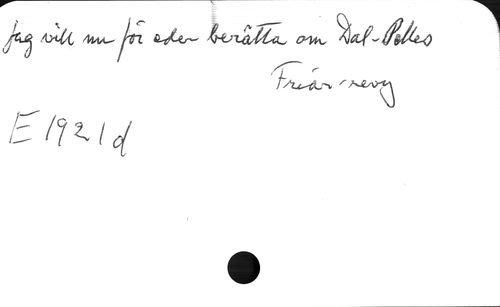 Jag vill nu för eder berätta om Dal-Pelles
Friar-revy
E 1921 d